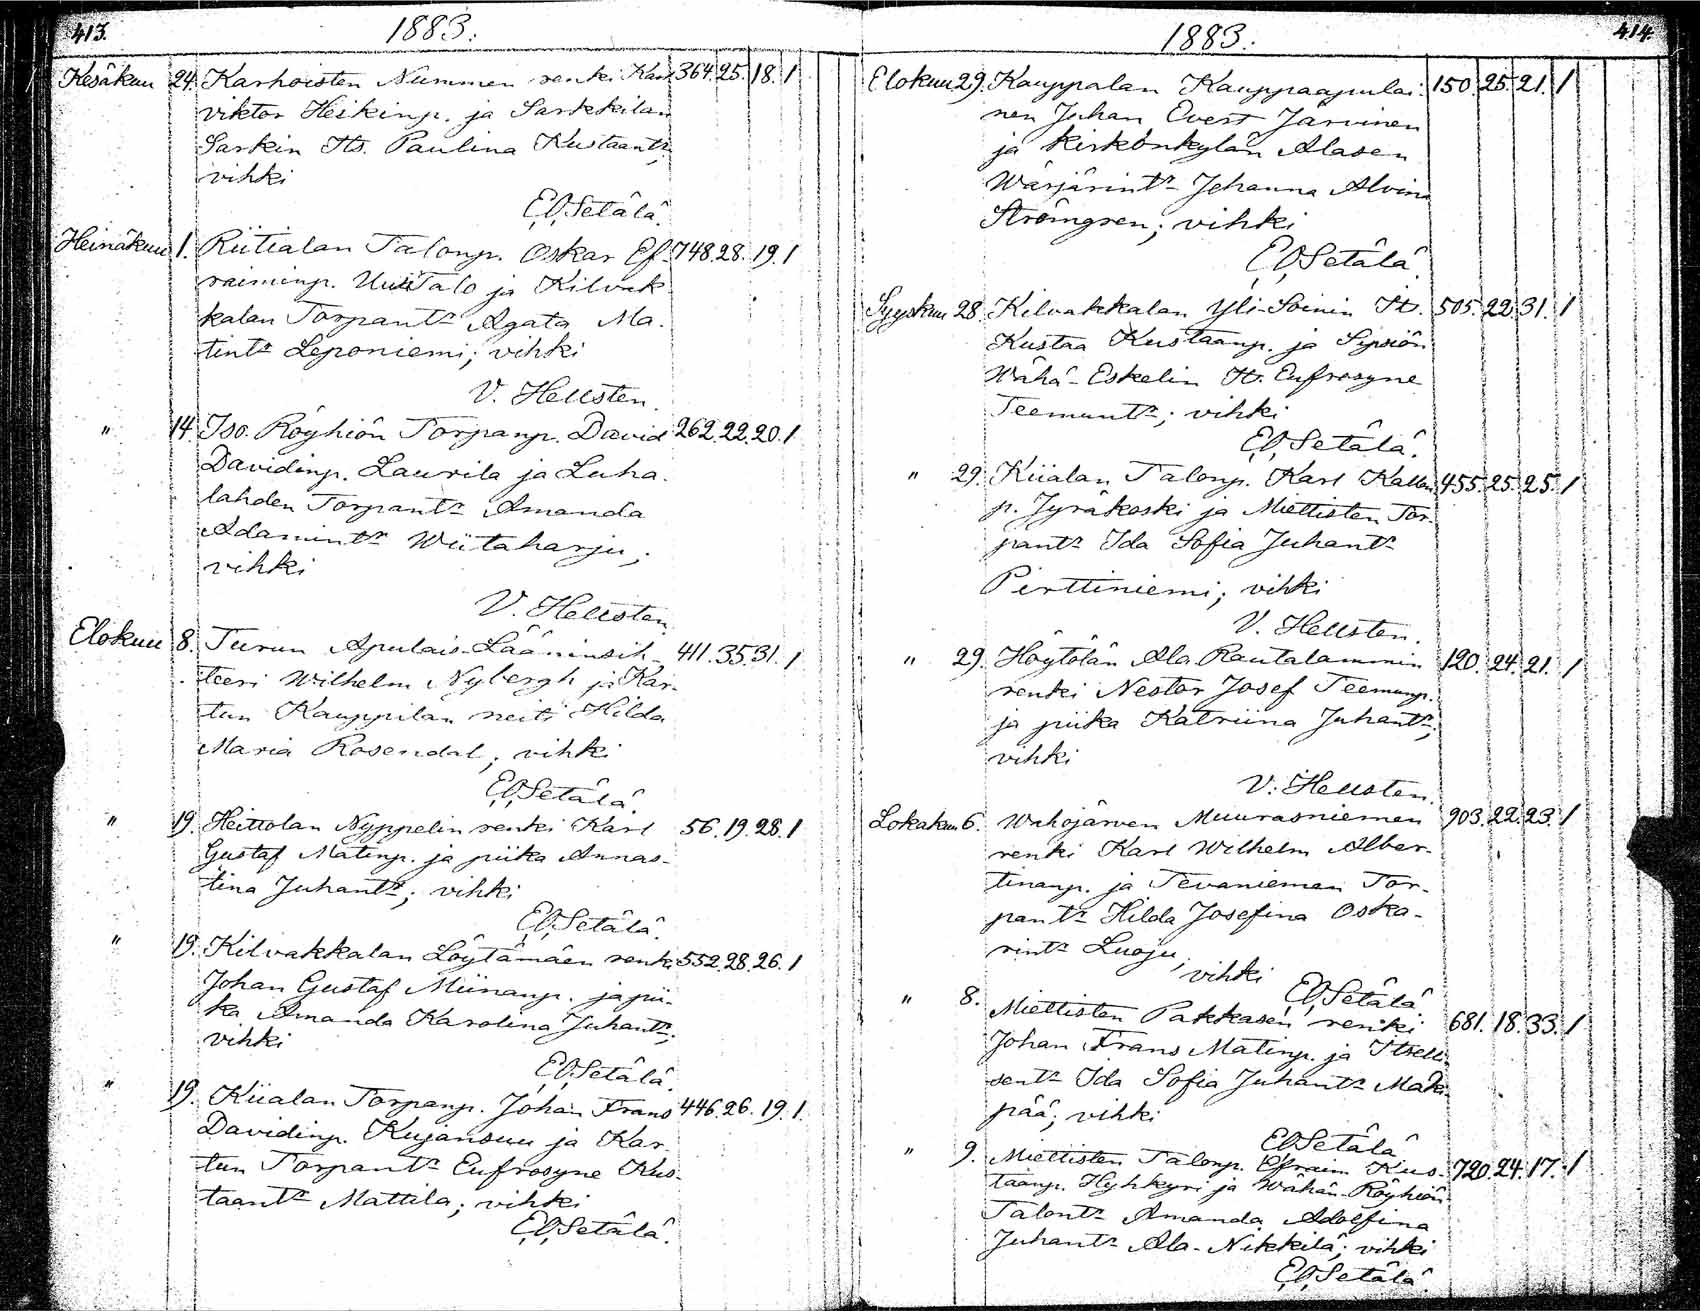 413.
1883.
Kesäkuu 24. Karhoisten Nummen renki Karl 364. 25. 18. 1
viktor Heikinp. ja Sarkkilan
Sarkin Its. Paulina Kustaantr,
vihki
E.O. Setälä.
Heinäkuu 1. Riitialan Talonp. Oskar Ef- 748. 28. 19. 1
raiminp. Uusi Talo ja Kilvak-
kalan Torpantr Agata Ma-
tintr Leponiemi; vihki
V. Hellsten.
" 14. Iso-Röyhiön Torpanp. David 262. 22. 20. 1
Davidinp. Laurila ja Luha-
lahden Torpantr Amanda
Adamintr Wiitaharju;
vihki
V. Hellsten.
Elokuu 8. Turun Apulais-Lääninsih- 411. 35. 31. 1
teeri Wilhelm Nybergh ja Kar-
tun Kauppilan neiti Hilda
Maria Rosendal; vihki
E.O. Setälä.
" 19. Heittolan Nyppelin renki Karl 56. 19. 28. 1
Gustaf Matinp. ja piika Annas-
tina Juhantr; vihki
E.O. Setälä.
" 19. Kilvakkalan Löytämäen renki 552. 28. 26. 1
Johan Gustaf Miinanp. ja pii-
ka Amanda Karolina Juhantr;
vihki
E.O. Setälä.
" 19. Kiialan Torpanp. Johan Frans 446. 26. 19. 1.
Davidinp. Kujansuu ja Kar-
tun Torpantr Eufrosyne Kus-
taantr Mattila; vihki
E.O. Setälä.
1883.
414.
Elokuu 29. Kauppalan Kauppaapulai- 150. 25. 21. 1
nen Juhan Evert Jarvinen
ja Kirkönkylän Alasen
Wärjärintr Johanna Alvina
Strömgren; vihki
E.O. Setälä.
Syyskuu 28. Kilvakkalan Yli-Soinin Its. 505. 22. 31. 1
Kustaa Kustaanp. ja Sipsiön
Wähä-Eskelin Its. Eufrosyne
Teemuntr; vihki
E.O. Setälä.
" 29. Kiialan Talonp. Karl Kallen 455. 25. 25. 1
p. Jyräkoski ja Miettisten Tor-
pantr Ida Sofia Juhantr
Perttiniemi; vihki
V. Hellsten.
" 29. Höytölän Ala Rautalammin 120. 24. 21. 1
renki Nestor Josef Teemunp.
ja piika Katriina Juhantr;
vihki
V. Hellsten.
Lokakuu 6. Wahojärven Muurasniemen 903. 22. 23. 1
renki Karl Wilhelm Alber-
tinanp. ja Tevaniemen Tor-
pantr Hilda Josefina Oska-
rintr Luoju; vihki
E.O. Setälä
" 8. Miettisten Pakkasen renki 681. 18. 33. 1
Johan Frans Matinp. ja Itselli-
sentr Ida Sofia Juhantr Mäki-
pää; vihki
E.O. Setälä
" 9. Miettisten Talonp. Efraim Kus- 720. 24. 17. 1
taanp. Hyhkyri ja Wähän-Röyhiön
Talontr Amanda Adolfina
Juhantr Ala-Nikkilä; vihki
E.O. Setälä